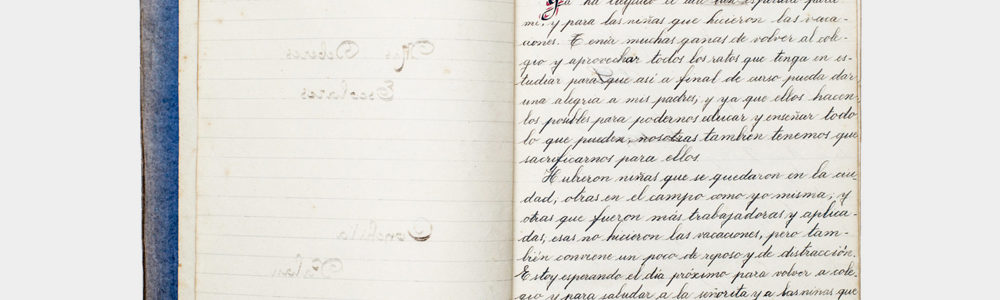 Mis Deberes
Escolares
Conchita
Ya ha llegado el día tan esperado para
mí, y para las niñas que hicieron las vaca-
ciones. Tenía muchas ganas de volver al cole-
gio y aprovechar todos los ratos que tenga en es-
tudiar para que así a final de curso pueda dar
una alegría a mis padres, y ya que ellos hacen
los posibles para podernos educar y enseñar todo
lo que pueden, nosotras también tenemos que
sacrificarnos para ellos.
Hubieron niñas que se quedaron en la ciu-
dad, otras en el campo como yo misma; y
otras que fueron más trabajadoras y aplica-
das, esas no hicieron las vacaciones, pero tam-
bién conviene un poco de reposo y de distracción.
Estoy esperando el día próximo para volver a cole-
gio y para saludar a la señorita y a las niñas que